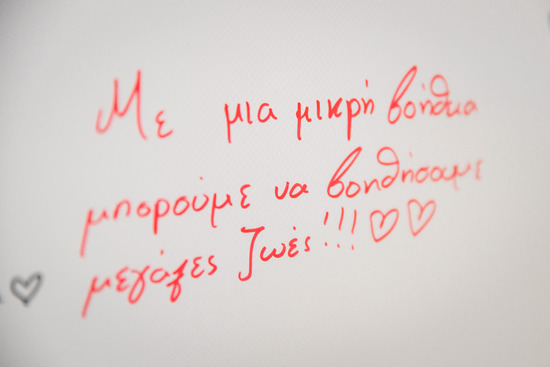 Με μια μικρή βοήθεια
μπορούμε να βοηθήσουμε
μεγάλες ζωές!!! ♡♡